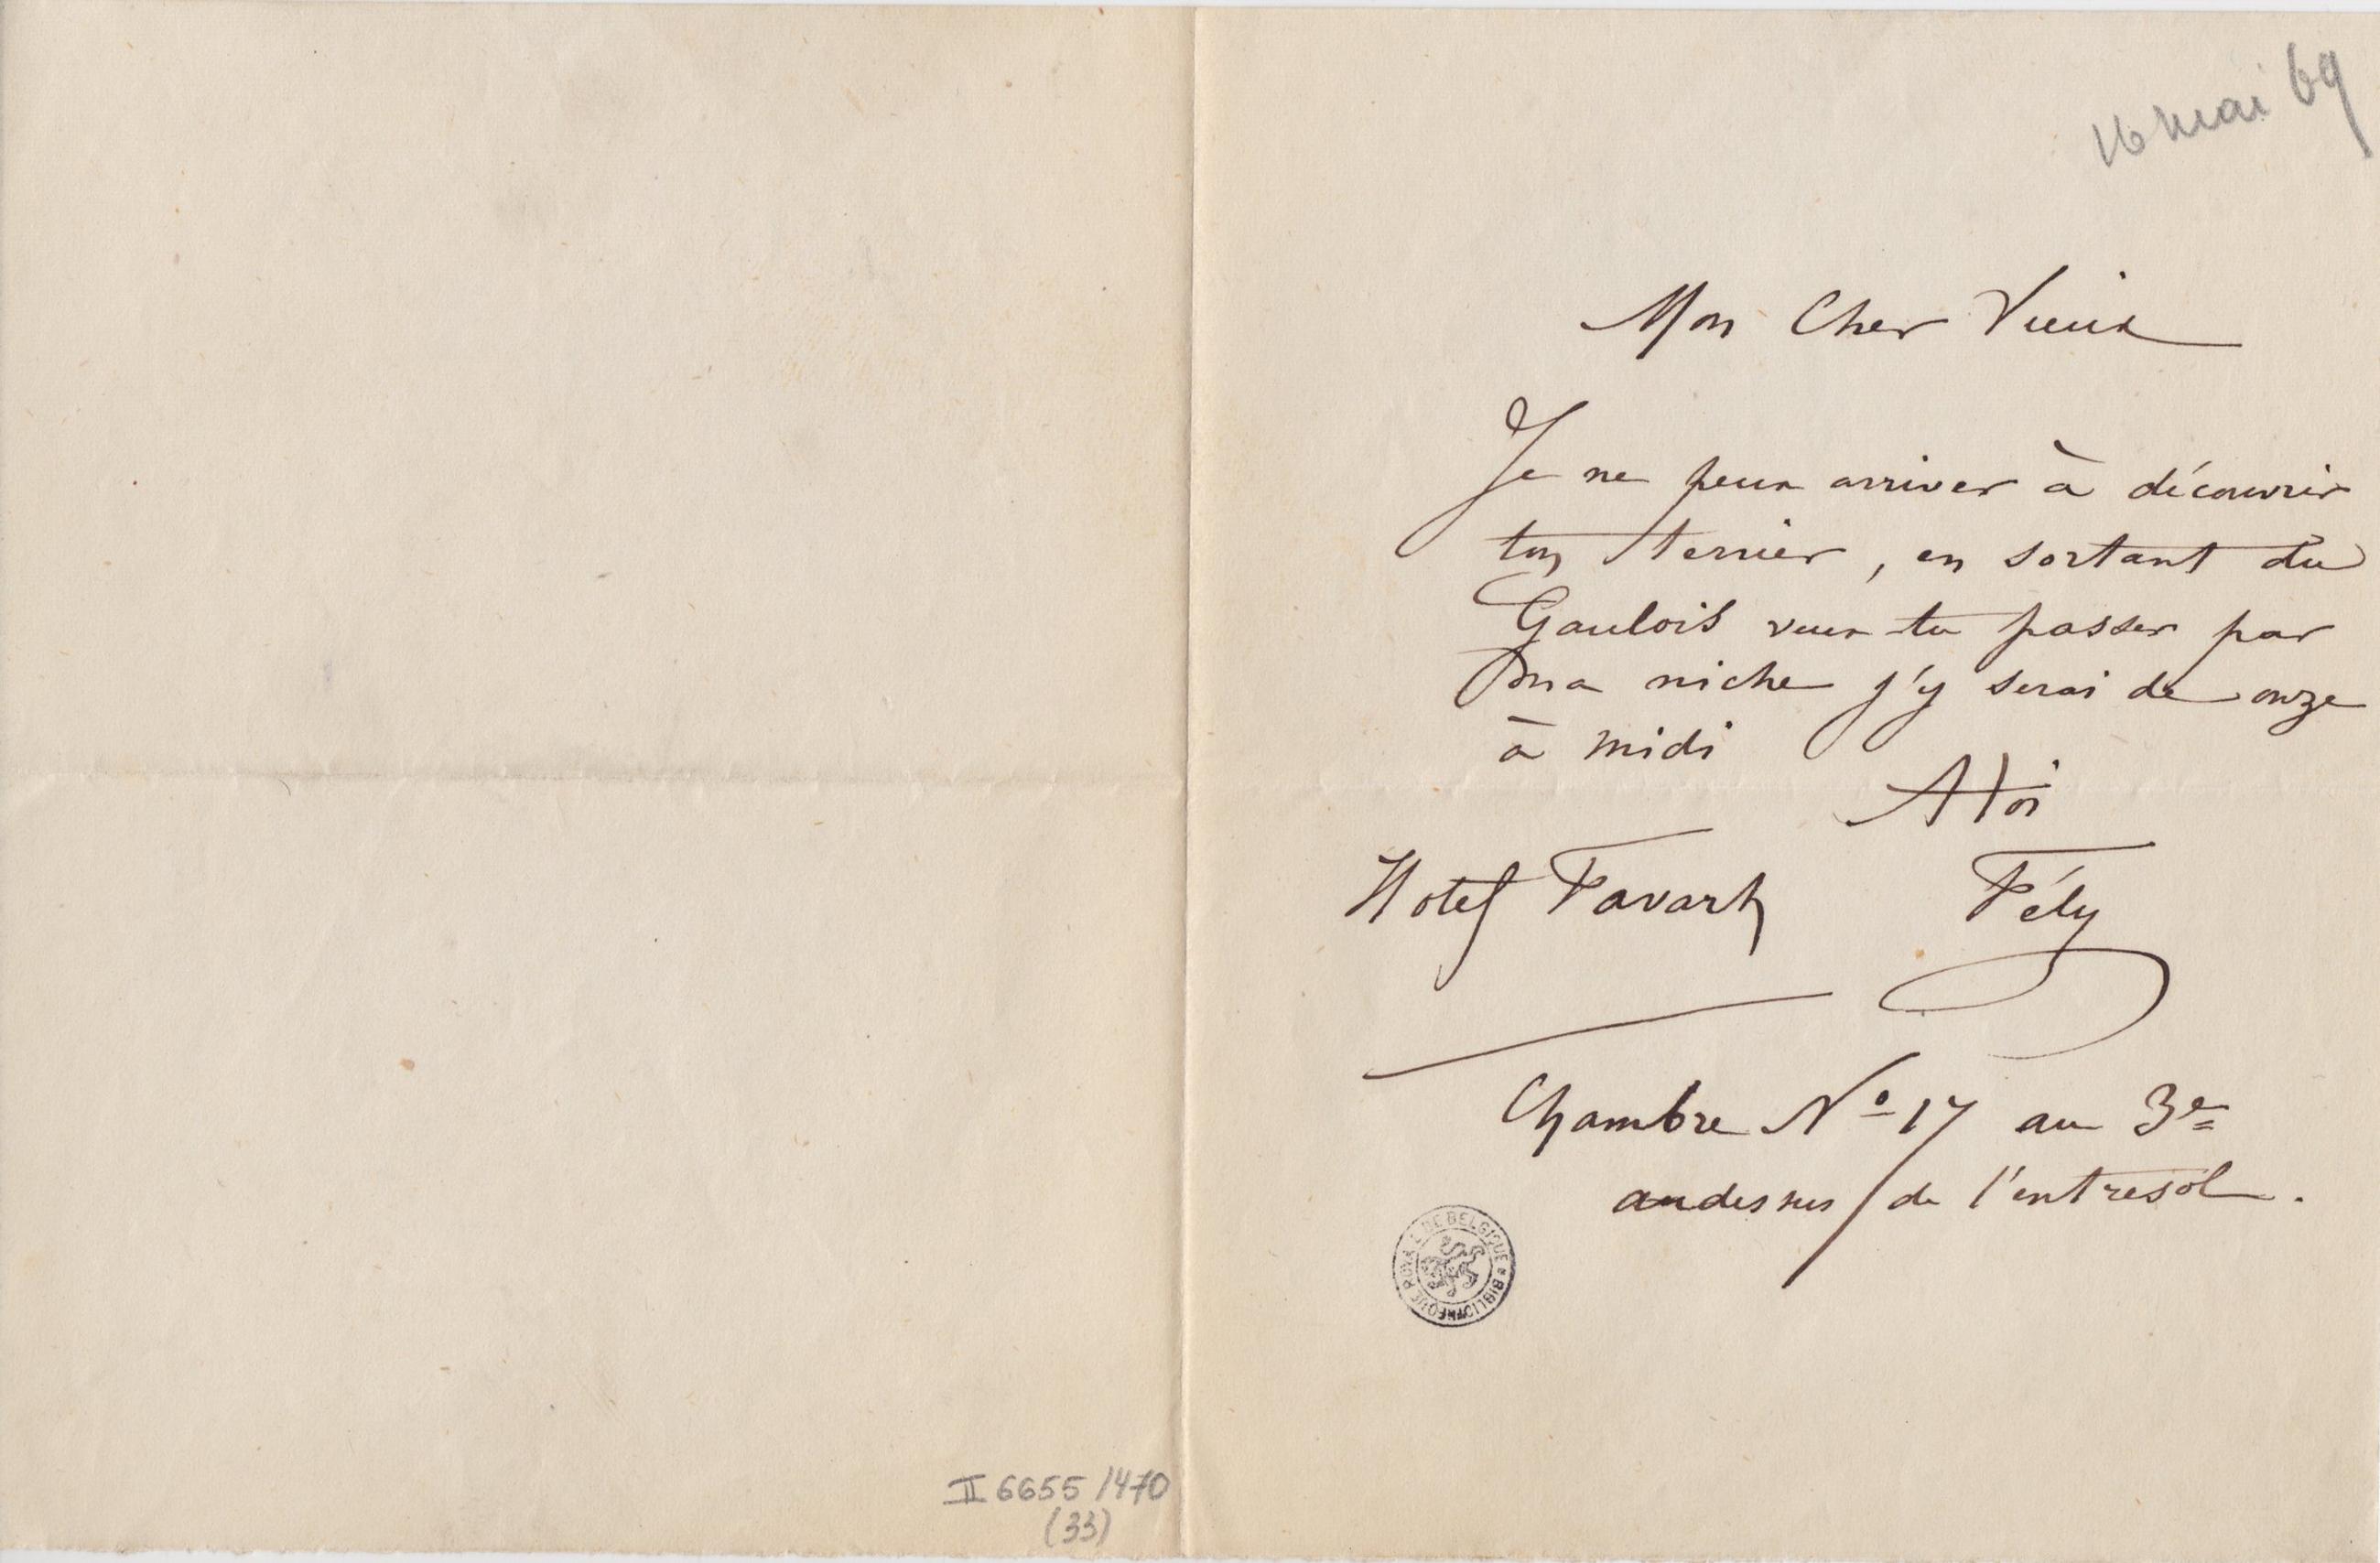 16 mai 69
Mon Cher Vieux
Je ne peux arriver à découvrir
ton terrier, en sortant du
Gaulois veux-tu passer par
ma niche j'y serai de onze
à midi
A toi
Hotel Favart Fély
Chambre Nº 17 au 3e
audessus de l'entresol.
BIBLIOTHEQUE ROYALE DE BELGIQUE
II 6655/470
(33)